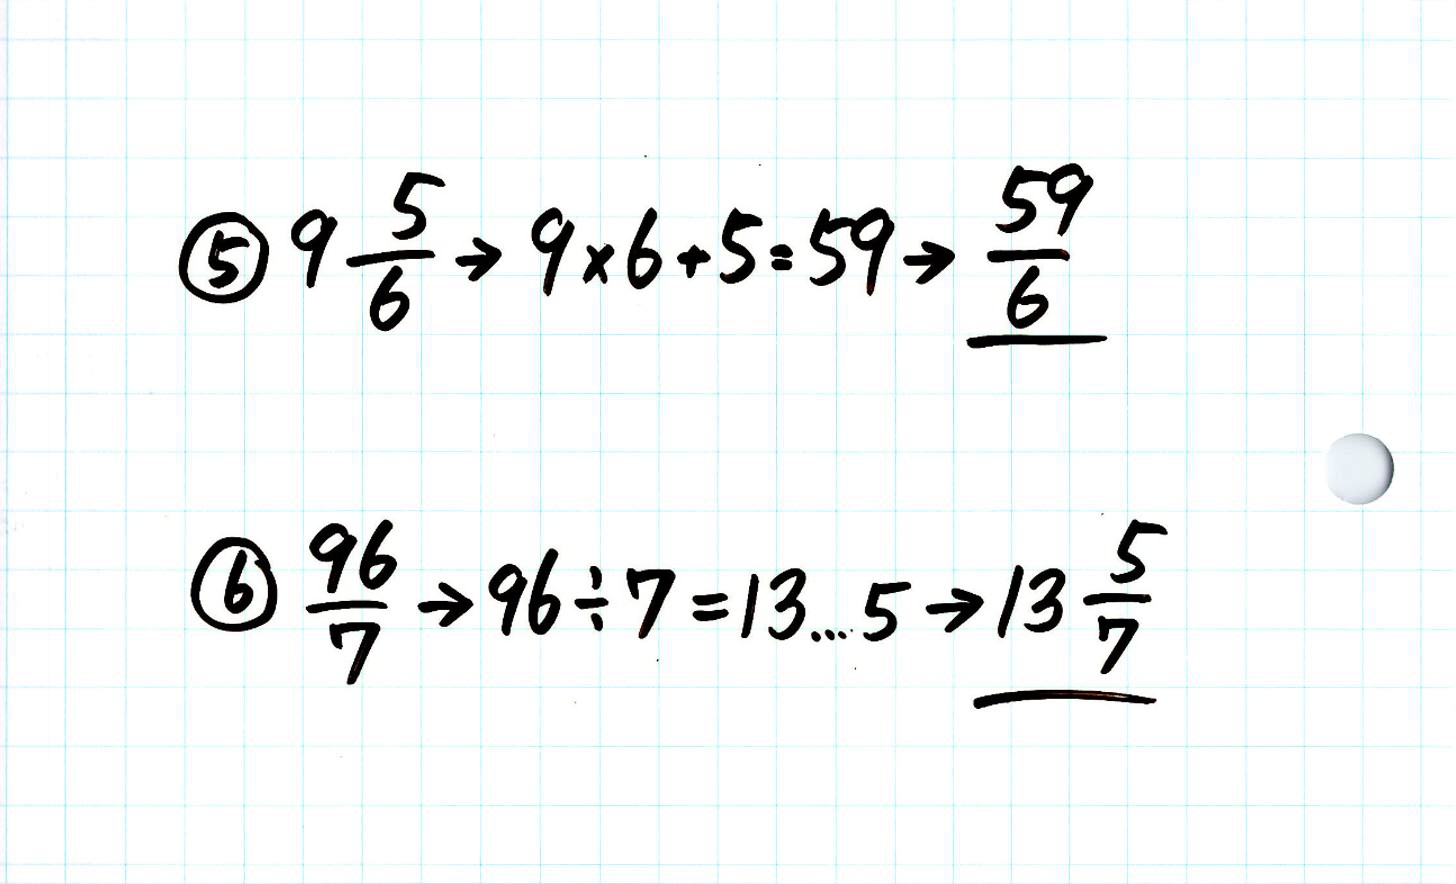 ⑤ 9 5/6 → 9×6+5=59 → 59/6
⑥ 96/7 → 96÷7=13...5 → 13 5/7